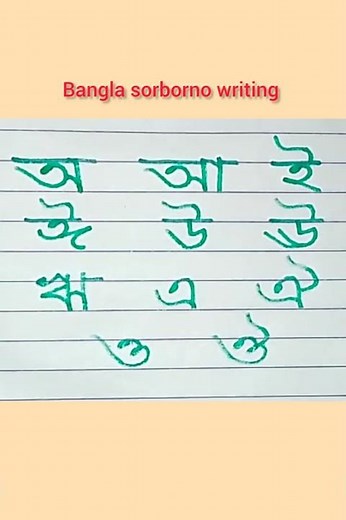 Bangla sorborno writing
অ আ ই
ঈ উ ঊ
ঋ এ ঐ
ও ঔ